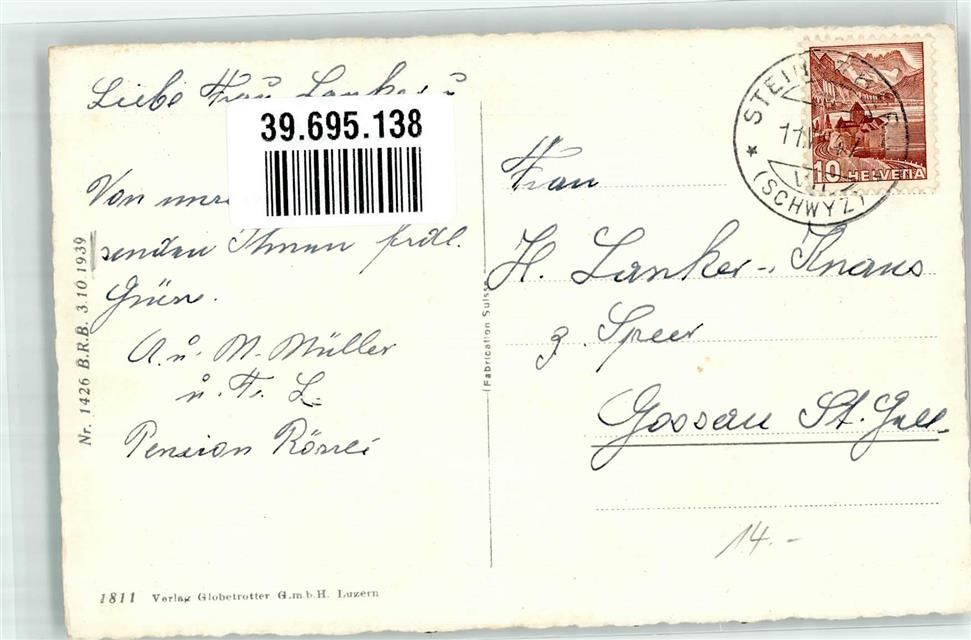 Liebe Frau Lanker u
39.695.138
Von
senden Ihnen frdl.
Grüsse.
A. u. M. Müller
u. Fr. L.
Pension Rössli
Nr. 1426 B.R.B. 3.10.1939
1811 Verlag Globetrotter G.m.b.H. Luzern
(Fabrication Suisse)
(SCHWYZ)
10 HELVETIA
Frau
H. Lanker-Knaus
z. Speer
Gossau St. Gall.
14.-